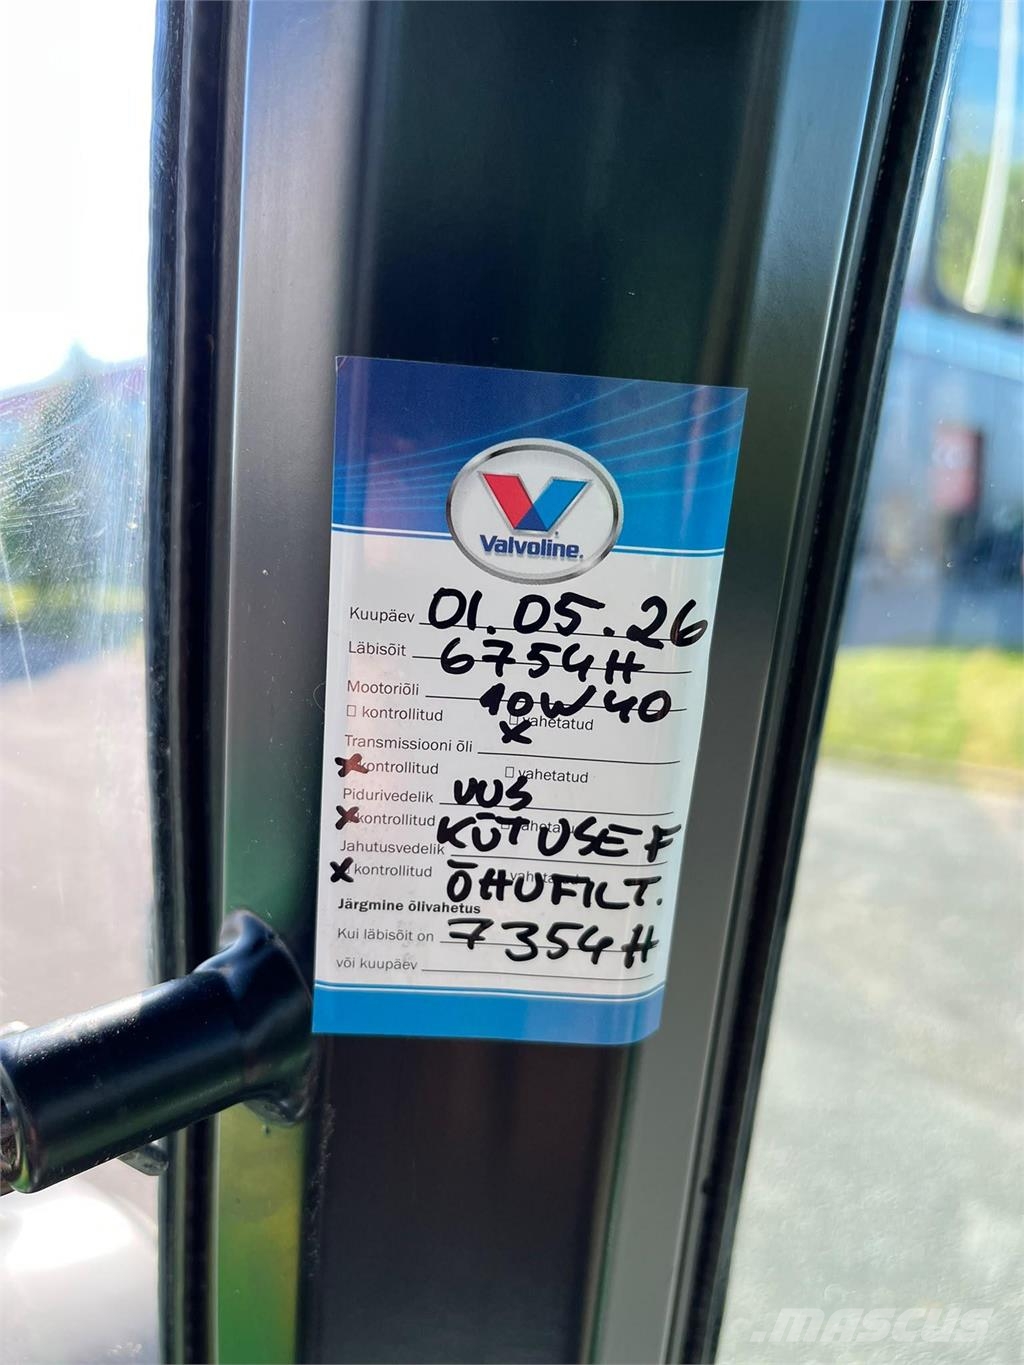 Valvoline.
Kuupäev 01.05.26
Läbisõit 6754H
Mootoriõli 10W40
kontrollitud vahetatud
x
Transmissiooni õli
x kontrollitud vahetatud
Pidurivedelik UUS
x kontrollitud vahetatud
KÜTUSE F
Jahutusvedelik
x kontrollitud vahetatud
ÕHUFILT.
Järgmine õlivahetus
Kui läbisõit on 7354H
või kuupäev
MASCUS